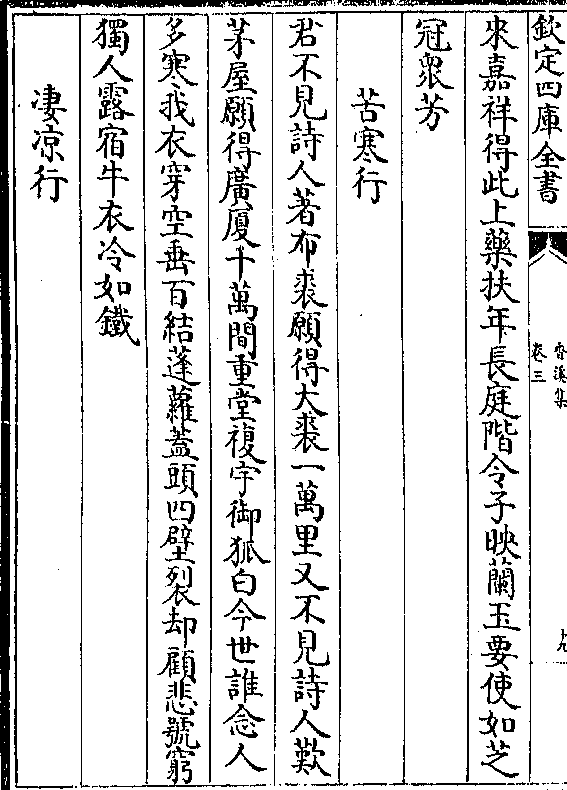 欽定四庫全書
香溪集
卷三
九
來嘉祥得此上藥扶年長庭階令子映蘭玉要使如芝
冠衆芳
苦寒行
君不見詩人著布裘願得大裘一萬里又不見詩人歎
茅屋願得廣厦千萬間重堂複宇御狐白今世誰念人
多寒我衣穿空垂百結蓬蘿蓋頭四壁裂却顧悲號窮
獨人露宿牛衣冷如鐵
凄凉行